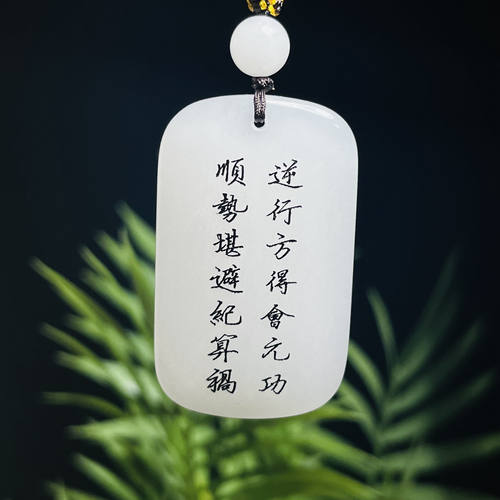 逆行方得會元功
順勢堪避紀算禍